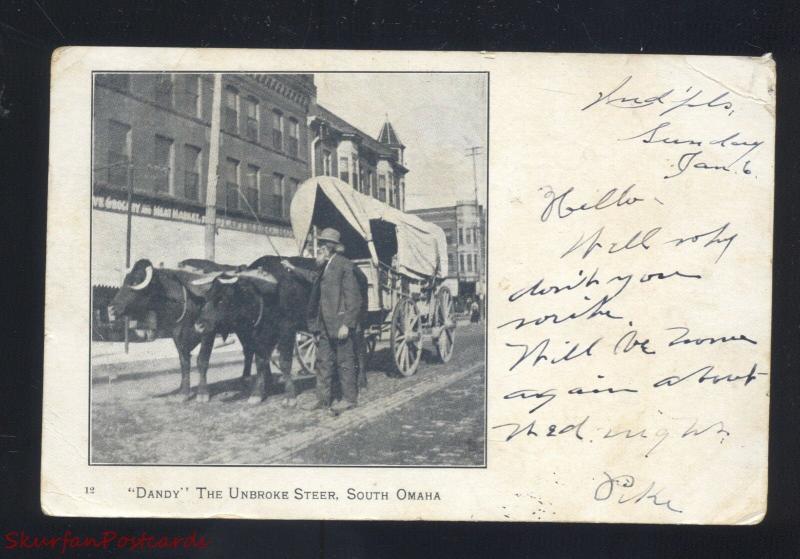 E GROCERY AND MEAT MARKET.
Ind'pls,
Sunday
Jan. 6.
Hello -
Well why
don't you
write.
Will be home
again about
Wed. night.
Pike
12 "DANDY" THE UNBROKE STEER, SOUTH OMAHA
SkurfanPostcards